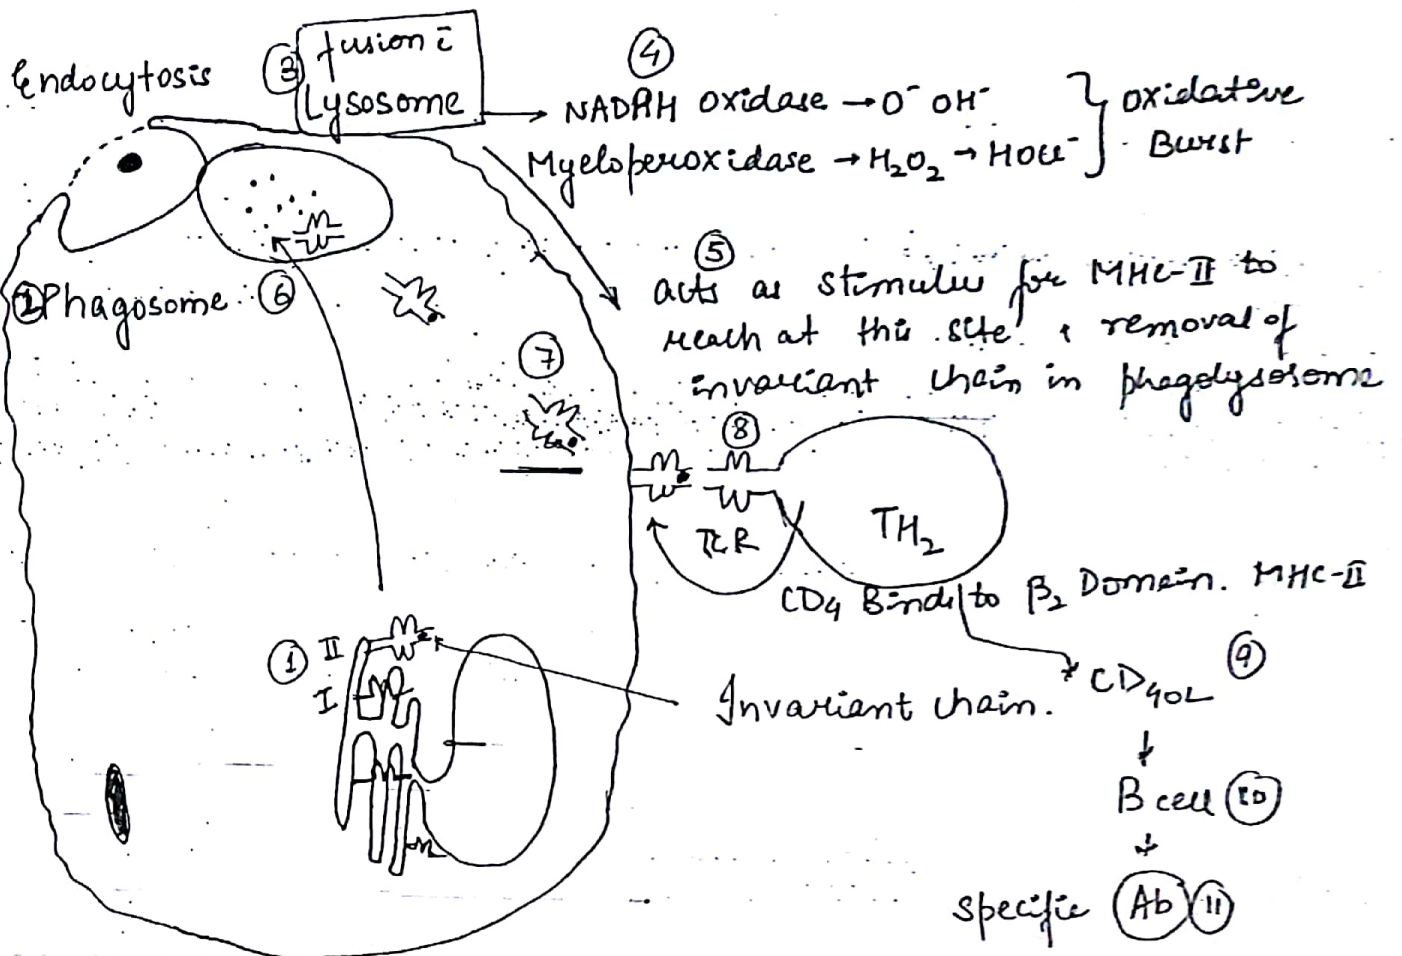 Endocytosis
③ fusion c̄
Lysosome
④
NADPH oxidase → O⁻ OH⁻ } oxidative
Myeloperoxidase → H₂O₂ → HOCl⁻ Burst
⑤
acts as stimulus for MHC-II to
reach at this site & removal of
invariant chain in phagolysosome
② Phagosome ⑥
⑦
⑧
TCR
TH₂
CD₄ Binds to β₂ Domain. MHC-II
① II
I
Invariant chain.
CD₄₀L ⑨
↓
B cell ⑩
↓
specific Ab ⑪